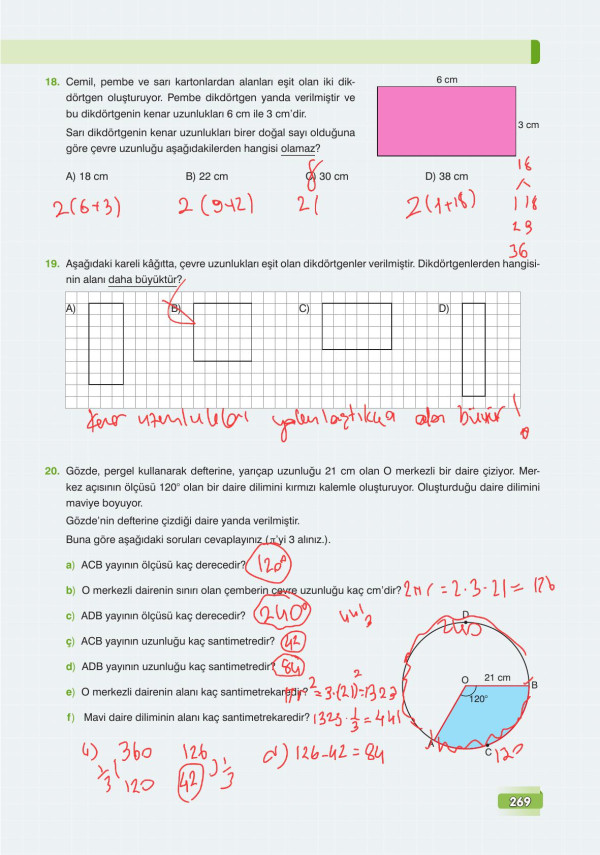 18. Cemil, pembe ve sarı kartonlardan alanları eşit olan iki dik-
dörtgen oluşturuyor. Pembe dikdörtgen yanda verilmiştir ve
bu dikdörtgenin kenar uzunlukları 6 cm ile 3 cm'dir.
Sarı dikdörtgenin kenar uzunlukları birer doğal sayı olduğuna
göre çevre uzunluğu aşağıdakilerden hangisi olamaz?
6 cm
3 cm
A) 18 cm B) 22 cm C) 30 cm D) 38 cm
2(6+3) 2(9+2) 2( 2(1+18)
18
1 18
2 9
36
19. Aşağıdaki kareli kâğıtta, çevre uzunlukları eşit olan dikdörtgenler verilmiştir. Dikdörtgenlerden hangisi-
nin alanı daha büyüktür?
A) B) C) D)
Kenar uzunlukları yakınlaştıkça alan büyür!
20. Gözde, pergel kullanarak defterine, yarıçap uzunluğu 21 cm olan O merkezli bir daire çiziyor. Mer-
kez açısının ölçüsü 120° olan bir daire dilimini kırmızı kalemle oluşturuyor. Oluşturduğu daire dilimini
maviye boyuyor.
Gözde'nin defterine çizdiği daire yanda verilmiştir.
Buna göre aşağıdaki soruları cevaplayınız (π'yi 3 alınız.).
a) ACB yayının ölçüsü kaç derecedir? 120°
b) O merkezli dairenin sınırı olan çemberin çevre uzunluğu kaç cm'dir? 2πr = 2.3.21 = 126
c) ADB yayının ölçüsü kaç derecedir? 240°
ç) ACB yayının uzunluğu kaç santimetredir? 42
d) ADB yayının uzunluğu kaç santimetredir? 84
e) O merkezli dairenin alanı kaç santimetrekaredir? πr² = 3.(21)² = 1323
f) Mavi daire diliminin alanı kaç santimetrekaredir? 1323 . 1/3 = 441
D
240
O 21 cm B
120°
A
C 120
ç) 360 126
1/3 ( 120 42 ) 1/3
d) 126-42 = 84
269